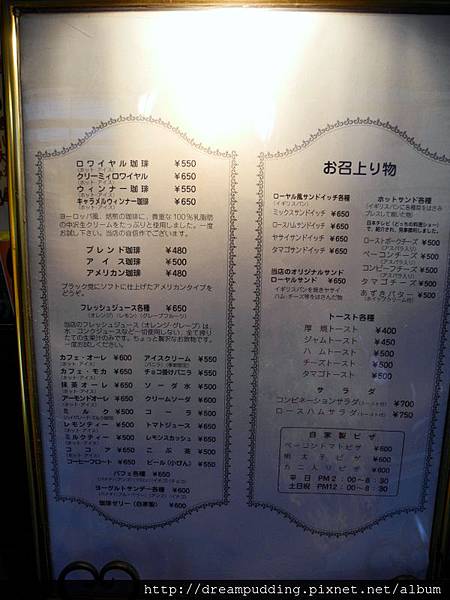 ロワイヤル珈琲 ¥550
(ホット・アイス)
クリーミィロワイヤル ¥650
ウィンナー珈琲 ¥550
(ホット・アイス)
キャラメルウィンナー珈琲 ¥650
(ホット・アイス)
ヨーロッパ風、焙煎の珈琲に、貴重な100%乳脂肪
の中沢生クリームをたっぷりと使用しました。一度
お試し下さい。当店の自信作でございます。
ブレンド珈琲 ¥480
アイス珈琲 ¥500
アメリカン珈琲 ¥480
ブラック党にソフトに仕上げたアメリカンタイプを
どうぞ。
フレッシュジュース各種 ¥650
(オレンジ)(レモン)(グレープフルーツ)
当店のフレッシュジュース(オレンジ・グレープ)は、
水・コンクジュースなど一切使用しない、全て搾り
たての生果汁のみです。ちょっと贅沢なお飲物です。
一度お試しください。
カフェ・オーレ ¥600
(ホット・アイス)
カフェ・モカ ¥650
(ホット・アイス)
抹茶オーレ ¥650
(ホット・アイス)
アーモンドオーレ ¥650
(ホット・アイス)
ミルク ¥500
レモンティー ¥500
(ホット・アイス)
ミルクティー ¥500
(ホット・アイス)
ココア ¥650
(ホット・アイス)
コーヒーフロート ¥650
アイスクリーム ¥550
チョコ掛けバニラ ¥550
ソーダ水 ¥500
クリームソーダ ¥600
コーラ ¥500
トマトジュース ¥650
レモンスカッシュ ¥650
こぶ茶 ¥500
ビール(小びん) ¥550
パフェ各種 ¥650
ヨーグルトサンデー各種 ¥600
珈琲ゼリー(自家製) ¥600
お召上り物
ローヤル風サンドイッチ各種
(イギリスパン)
ミックスサンドイッチ ¥650
ロースハムサンドイッチ ¥650
ヤサイサンドイッチ ¥650
タマゴサンドイッチ ¥650
当店のオリジナルサンド
ローヤルサンド ¥650
イギリスパンを焼きヤサイ
ハム・チーズ等をはさんだ物
ホットサンド各種
(イギリスパンに各種類をはさみ
プレスして焼いた物)
ローストポークチーズ ¥500
(アスパラ入り)
ベーコンチーズ ¥500
(アスパラ入り)
コンビーフチーズ ¥500
(アスパラ入り)
タマゴチーズ ¥500
あずきバター ¥500
トースト各種
厚焼トースト ¥400
ジャムトースト ¥450
ハムトースト ¥500
チーズトースト ¥500
タマゴトースト ¥500
サラダ
コンビネーションサラダ(トースト付) ¥700
ロースハムサラダ(トースト付) ¥750
自家製ピザ
ベーコントマトピザ ¥600
明太子ピザ ¥600
カニ入りピザ ¥600
平日 PM2:00~8:30
土日祝 PM12:00~8:30
http://dreampudding.pixnet.net/album